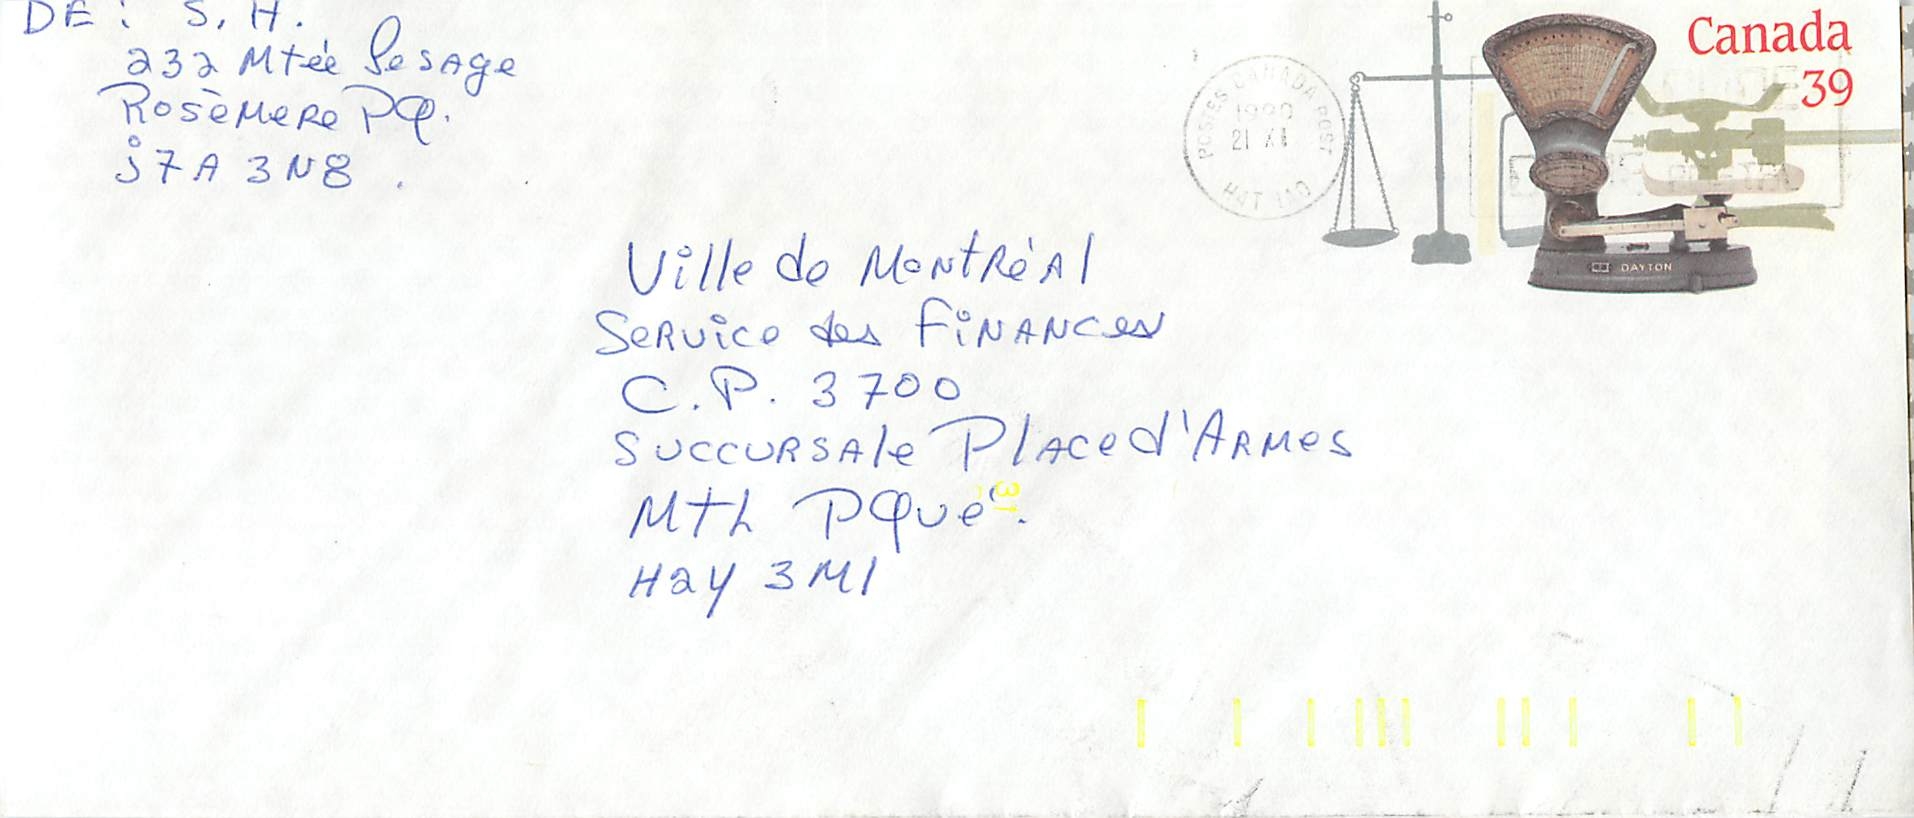 DE: S. H.
232 Mtée Lesage
Rosèmere PQ.
J7A 3N8.
Canada
39
POSTES CANADA POST
1990
21 XI
DAYTON
Ville de Montréal
Service des Finances
C.P. 3700
Succursale Place d'Armes
Mtl PQué.
H2Y 3M1